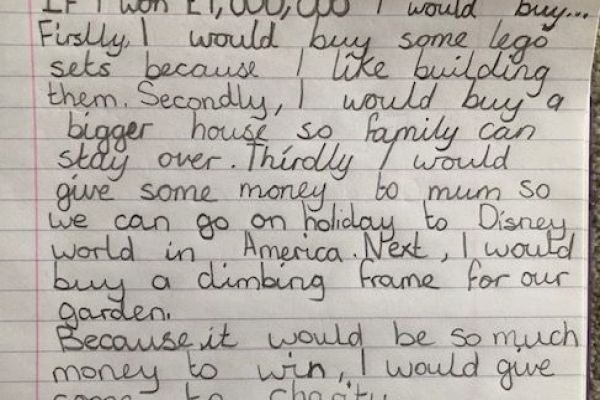 IF I won £1,000,000 I would buy...
Firslly, I would buy some lego
sets because I like building
them. Secondly, I would buy a
bigger house so family can
stay over. Thirdly I would
give some money to mum so
we can go on holiday to Disney
world in America. Next, I would
buy a climbing frame for our
garden.
Because it would be so much
money to win, I would give
some to charity